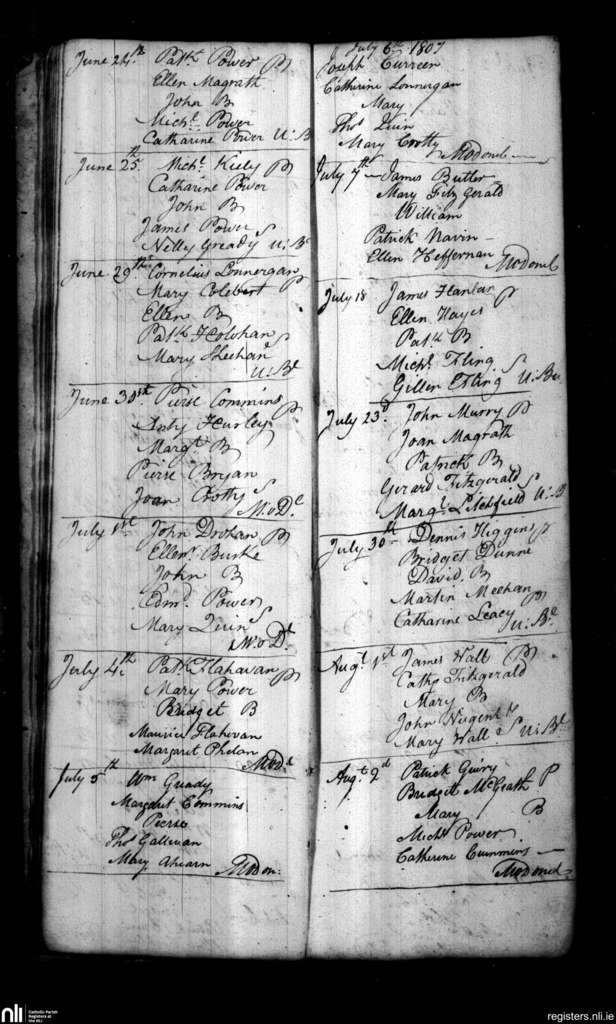 June 24th Patk Power P
Ellen Magrath
John B
Michl Power
Catharine Power U: B
June 25th Michl Kiely P
Catharine Power
John B
James Power S
Nelly Gready U: Be
June 29th Cornelius Lonnergan
Mary Colebert P
Ellen B
Patk Holohan S
Mary Sheehan
U: Be
June 30st Pierse Commins P
Hurley
Margt B
Pierse Bryan
Joan Crotty S
M:oDl
July 1st John Doohan P
Ellenr Burke
John B
Edmd Power S
Mary Quin
M:oDl
July 4th Patk Flahavan P
Mary Power
Bridget B
Maurice Flahavan
Margaret Phelan
MoDl
July 5th Wm Gready
Margaret Commins
Pierse
Thos Gallivan
Mary Ahearn MoDon:
July 6th 1807
Joseph Curreen
Catherine Lonnergan
Mary
Thos Quin
Mary Crotty MoDonel
July 7th James Butler
Mary Fitz Gerald
William
Patrick Navin
Ellen Heffernan MoDonel
July 18 James Hanlan P
Ellen Hayes
Patk B
Michl Fling S
Gillen Fling U: Be
July 23d John Murry P
Joan Magrath
Patrick B
Gerard Fitzgerald S
Margt Litchfield U: B
July 30th Dennis Higgins P
Bridget Dunne
David B
Martin Meehan
Catharine Leacy
U: Be
Augt 1st James Wall P
Cathe Fitzgerald
Mary B
John Nugent
Mary Wall S U: Be
Augt 2d Patrick Guiry
Bridget McGrath P
Mary B
Michl Power
Catherine Cummins
MoDonel
nli
Catholic Parish
Registers at
the NLI
registers.nli.ie